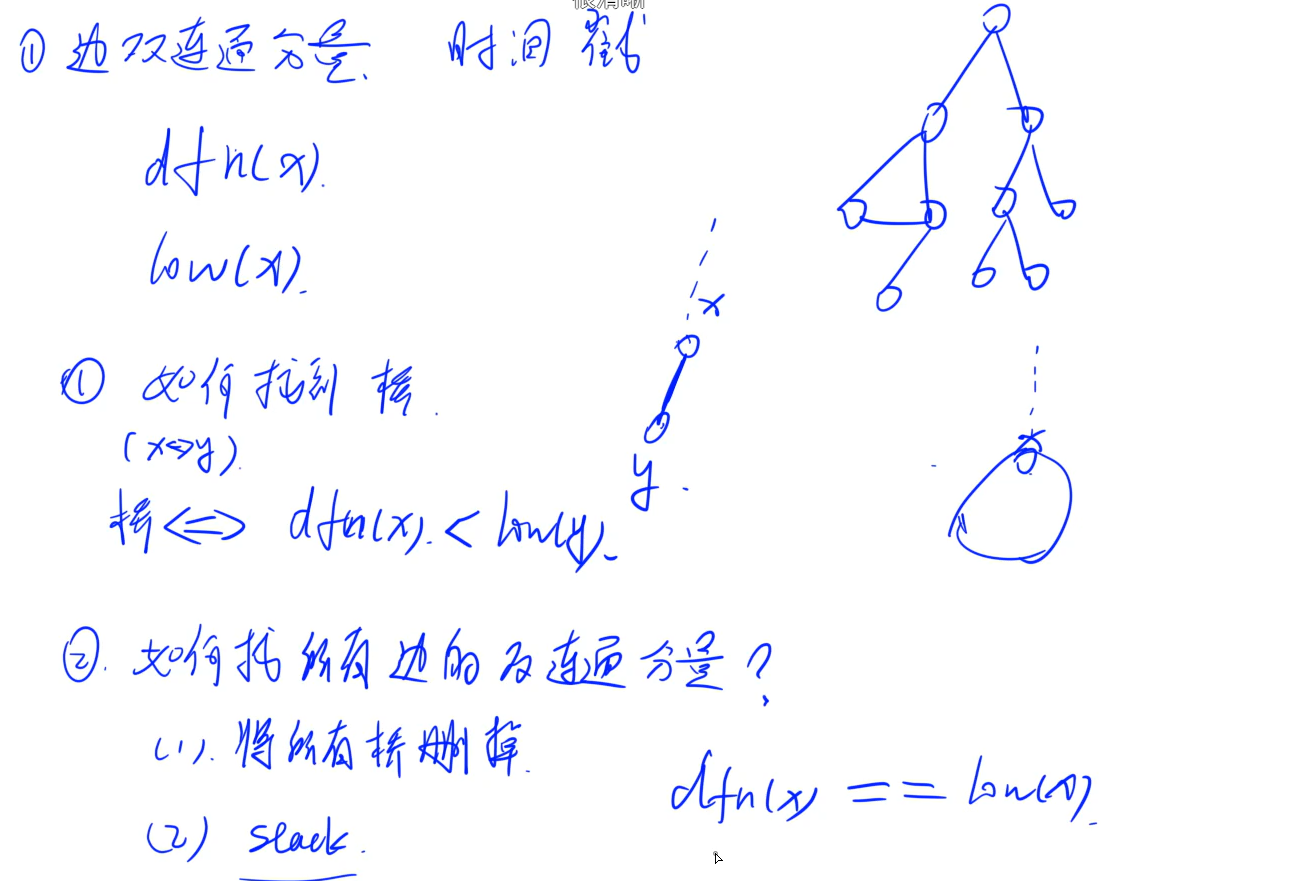 很清晰
① 边双连通分量. 时间戳
dfn(x).
low(x).
① 如何找到桥.
(x⇔y).
桥 ⇔ dfn(x). < low(y).
x
y.
x
②. 如何找所有边的双连通分量?
(1). 将所有桥删掉.
(2) stack.
dfn(x) == low(x).